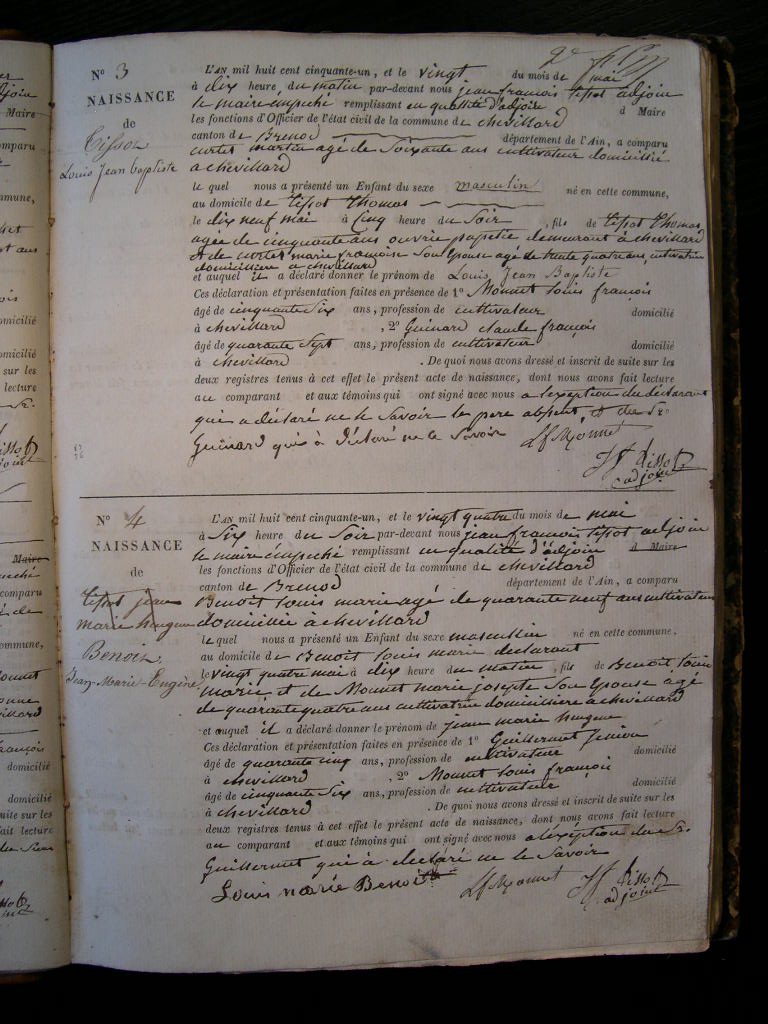 N° 3
NAISSANCE
de
Tissot
Louis Jean baptiste
L'AN mil huit cent cinquante-un, et le vingt du mois de mai
à dix heure, du matin par-devant nous jean françois tissot adjoin
le maire empeché remplissant en qualité d'adjoin d Maire
les fonctions d'Officier de l'état civil de la commune de chevillard
canton de Brenod département de l'Ain, a comparu
curtet martin agé de Soixante ans cultivateur domicillié
a chevillard
le quel nous a présenté un Enfant du sexe masculin né en cette commune,
au domicile de tissot thomas
le dix neuf mai à Cinq heure du Soir , fils de tissot thomas
agée de cinquante ans ouvrie papetie demeurant à chevillard
et de curtet marie francoise Son Epouse agé de trente quatre ans cultivatrice
domicilliere a chevillard
et auquel il a déclaré donner le prénom de Louis Jean Baptiste
Ces déclaration et présentation faites en présence de 1° Monnet louis françois
âgé de cinquante Six ans, profession de cultivateur domicilié
à chevillard , 2° Guinard claude françois
âgé de quarante Sept ans, profession de cultivateur domicilié
à chevillard . De quoi nous avons dressé et inscrit de suite sur les
deux registres tenus à cet effet le présent acte de naissance, dont nous avons fait lecture
au comparant et aux témoins qui ont signé avec nous a lexeption du déclarant
qui a déclaré ne le Savoir le pere absent et du Sr
Guinard qui à déclaré ne le Savoir Lf Monnet
JF tissot
adjoint
N° 4
NAISSANCE
de
tissot jean
marie heugene
Benoit
Jean-Marie-Eugène
L'AN mil huit cent cinquante-un, et le vingt quatre du mois de mai
à Six heure du Soir par-devant nous jean francois tissot adjoin
le maire empeché remplissant en qualité d'adjoin d Maire
les fonctions d'Officier de l'état civil de la commune de chevillard
canton de Brenod département de l'Ain, a comparu
Benoit louis marie agé de quarante neuf ans cultivateur
domicillié à chevillard
le quel nous a présenté un Enfant du sexe mascullin né en cette commune,
au domicile de Benoit louis marie declarant
le vingt quatre mai à dix heure du matin , fils de Benoit louis
marie et de Monnet marie josepte Son Epouse agé
de quarante quatre ans cultivatrice domicilliere à chevillard
et auquel il a déclaré donner le prénom de jean marie heugene
Ces déclaration et présentation faites en présence de 1° Guillermet
âgé de quarante cinq ans, profession de cultivateur domicilié
à chevillard , 2° Monnet louis francois
âgé de cinquante Six ans, profession de cultivateur domicilié
à chevillard . De quoi nous avons dressé et inscrit de suite sur les
deux registres tenus à cet effet le présent acte de naissance, dont nous avons fait lecture
au comparant et aux témoins qui ont signé avec nous a lexéption du Sr.
Guillermet qui à declaré ne le Savoir
Louis marie Benoit Lf Monnet JF tissot
adjoint